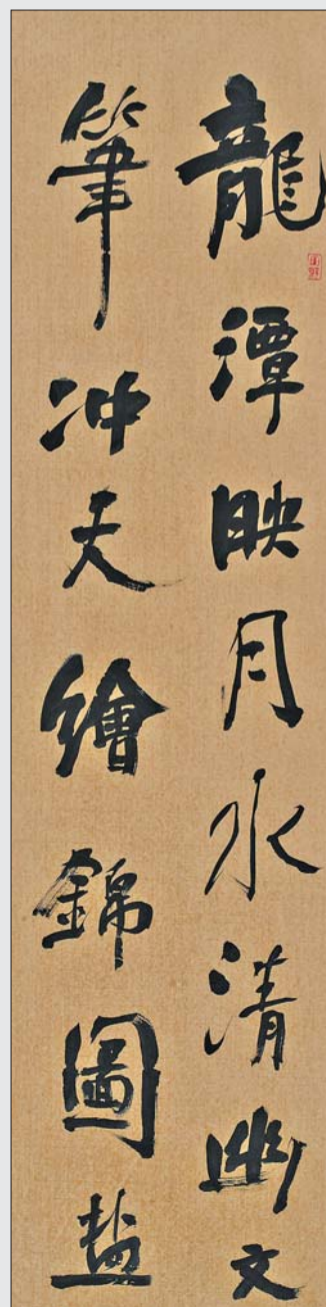 龍潭映月水清幽文
筆冲天繪錦圖盐